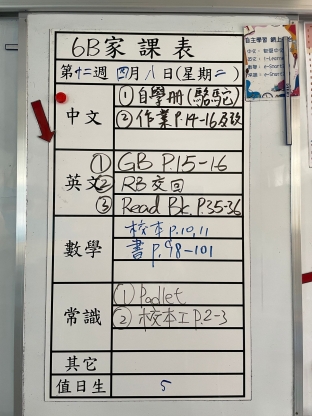 6B家課表
第十二週 四月八日(星期二)
中文
①自學冊(駱駝)
②作業P.14-16及改
英文
①GB P.15-16
②RB交回
③Read Bk. P.35-36
數學
校本p.10,11
書p.98-101
常識
①Padlet
②校本工P.2-3
其它
值日生 5